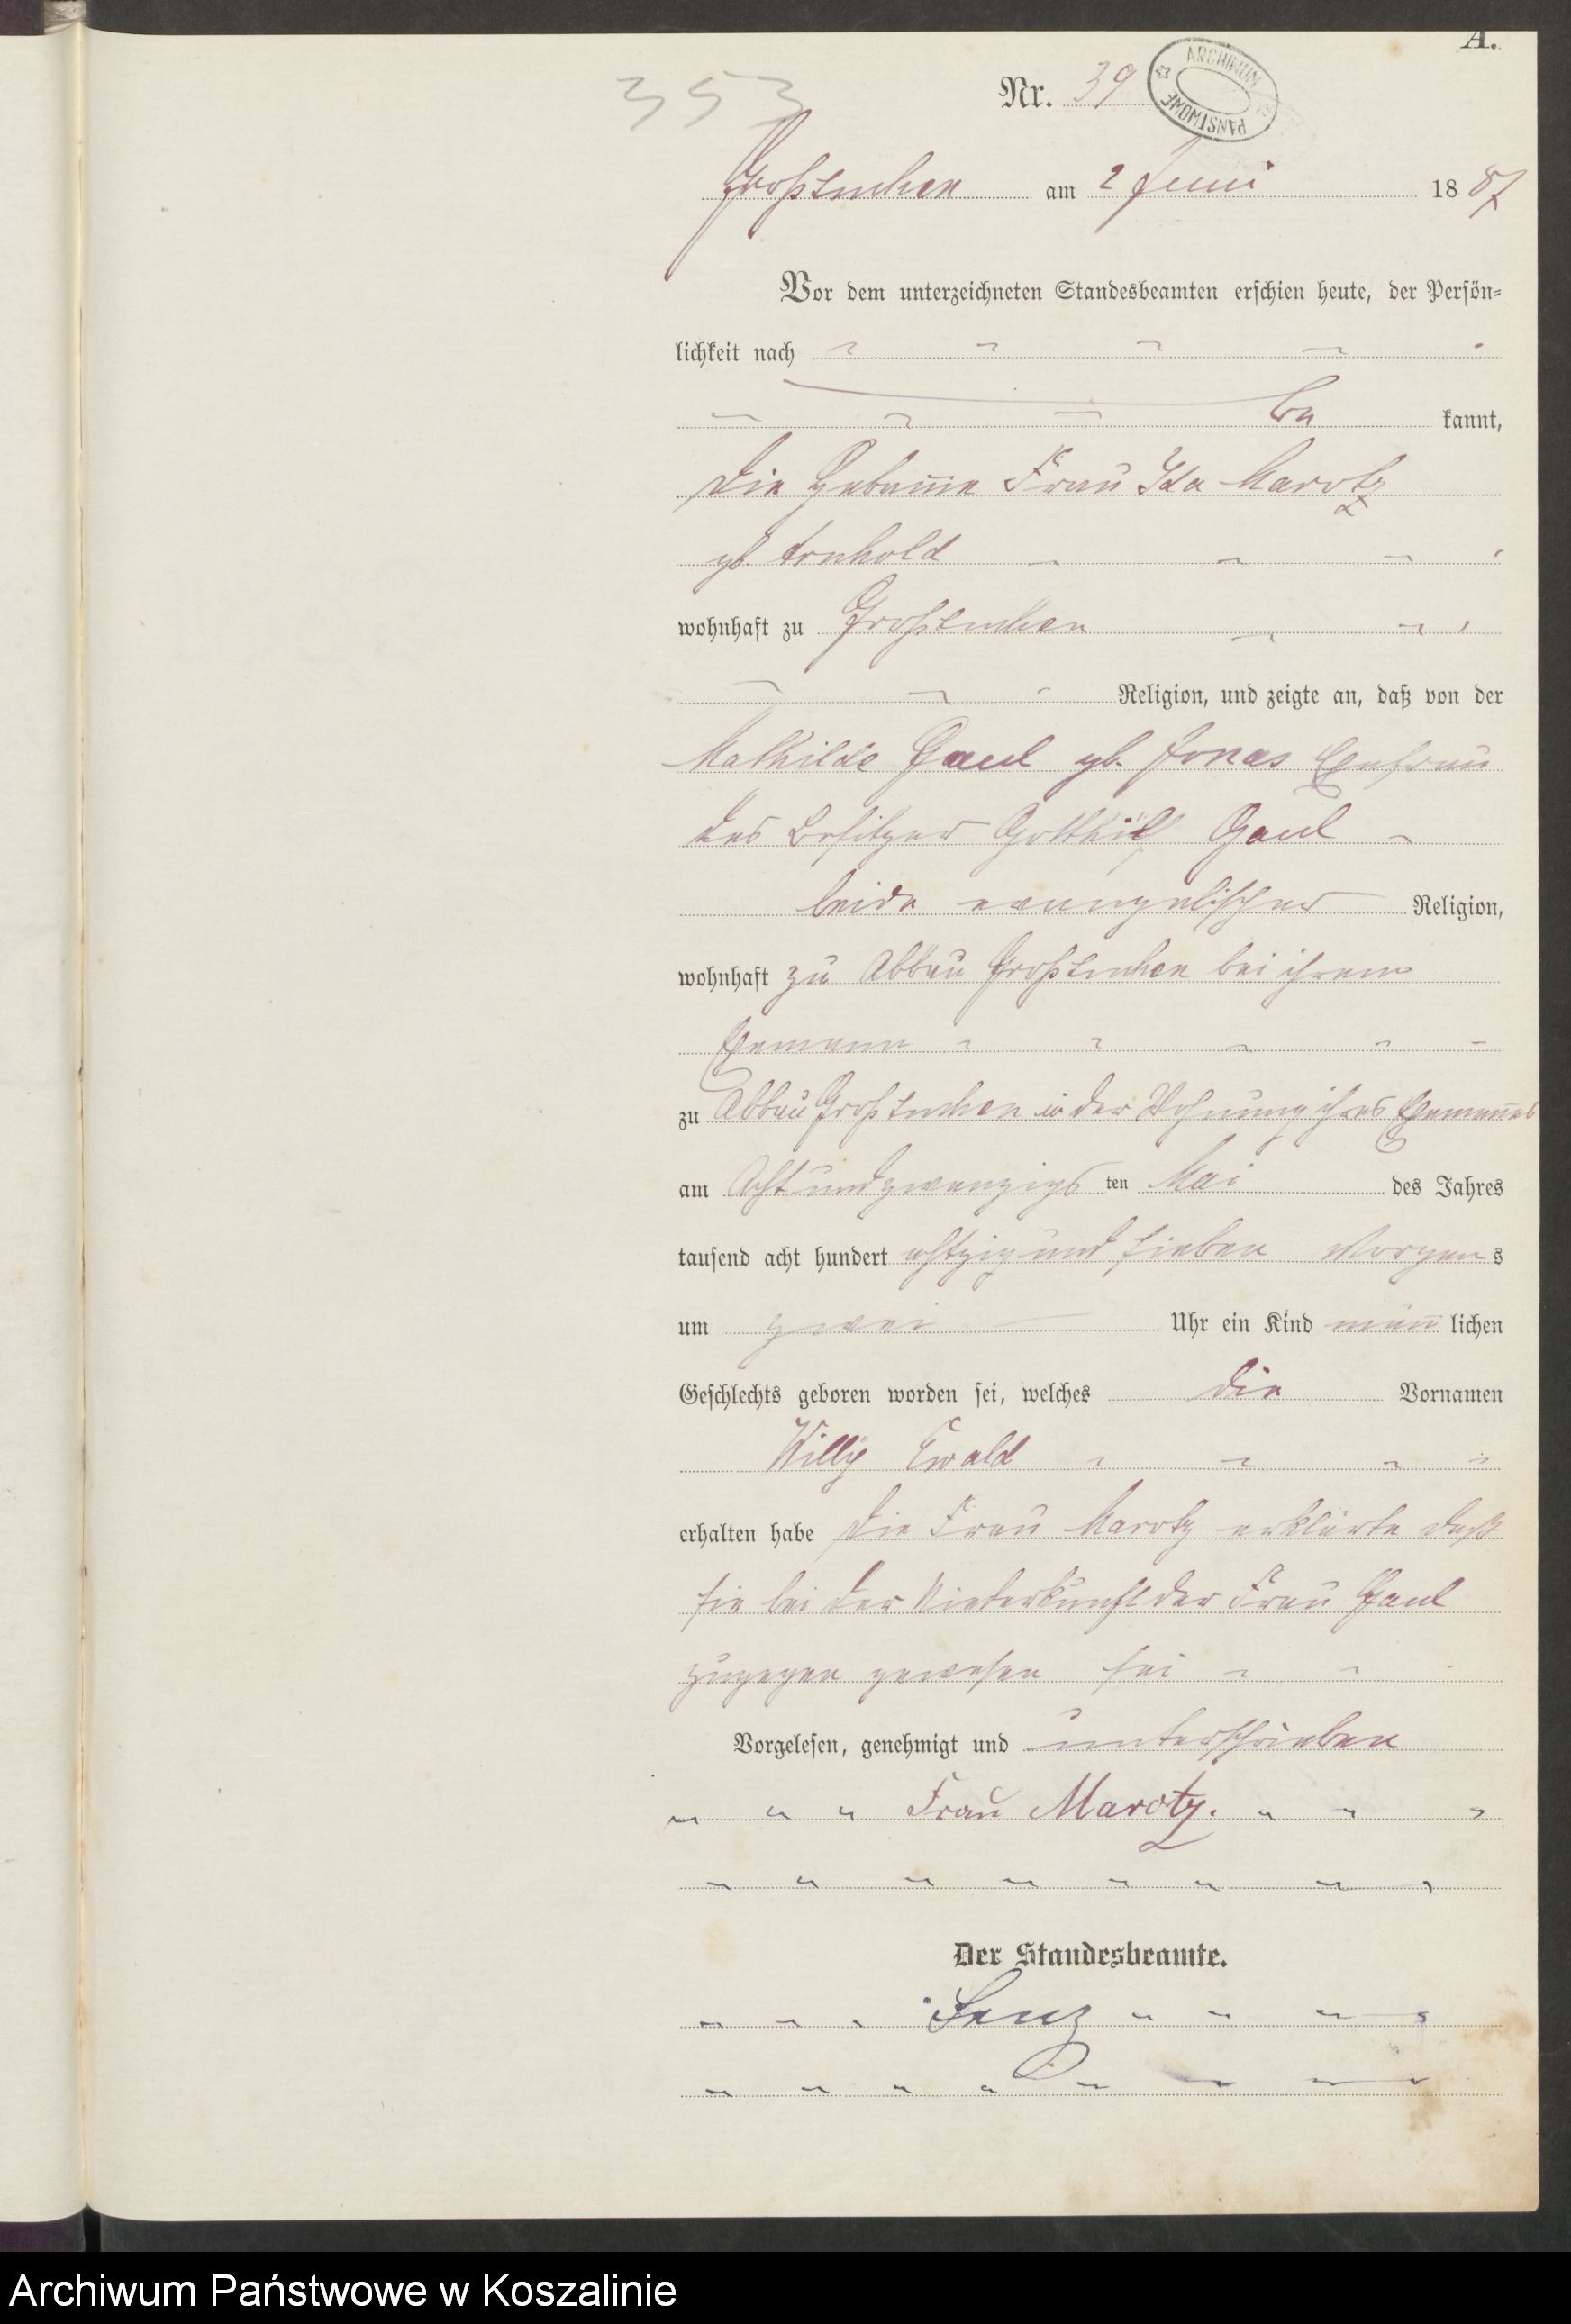 A.
353
Nr. 39
ARCHIWUM PAŃSTWOWE
Großtuchen am 2 Juni 1887
Vor dem unterzeichneten Standesbeamten erschien heute, der Persön-
lichkeit nach
be kannt,
die Hebamme Frau Ida Marotz
geb. Arnhold
wohnhaft zu Großtuchen
Religion, und zeigte an, daß von der
Mathilde Gaul geb. Jonas Ehefrau
des Besitzer Gotthilf Gaul
beide evangelischer Religion,
wohnhaft zu Abbau Großtuchen bei ihrem
Ehemann
zu Abbau Großtuchen in der Wohnung ihres Ehemannes
am Achtundzwanzigs ten Mai des Jahres
tausend acht hundert achtzig und sieben Morgens
um zwei Uhr ein Kind männlichen
Geschlechts geboren worden sei, welches die Vornamen
Willy Ewald
erhalten habe die Frau Marotz erklärte daß
sie bei der Niederkunft der Frau Gaul
zugegen gewesen sei
Vorgelesen, genehmigt und unterschrieben
Frau Marotz.
Der Standesbeamte.
Lenz
Archiwum Państwowe w Koszalinie